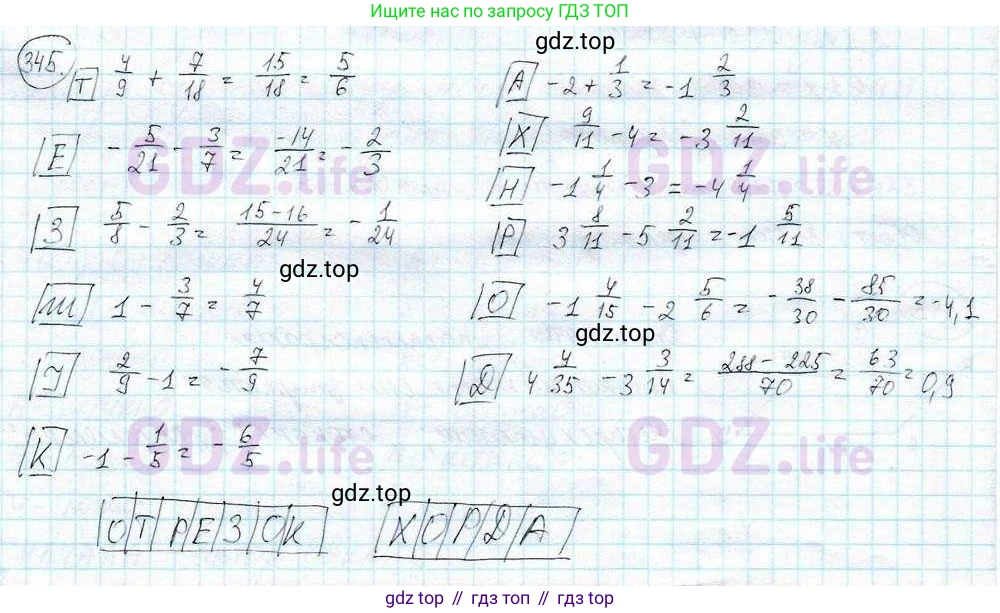 Ищите нас по запросу ГДЗ ТОП
gdz.top
345.
Т 4/9 + 7/18 = 15/18 = 5/6
Е -5/21 - 3/7 = -14/21 = -2/3
З 5/8 - 2/3 = 15-16/24 = -1/24
gdz.top
Ш 1 - 3/7 = 4/7
У 2/9 - 1 = -7/9
К -1 - 1/5 = -6/5
А -2 + 1/3 = -1 2/3
Х 9/11 - 4 = -3 2/11
Н -1 1/4 - 3 = -4 1/4
Р 3 8/11 - 5 2/11 = -1 5/11
О -1 4/15 - 2 5/6 = -38/30 - 85/30 = -4,1
gdz.top
Д 4 4/35 - 3 3/14 = 288-225/70 = 63/70 = 0,9
GDZ.life
GDZ.life
GDZ.life
GDZ.life
gdz.top
ОТРЕЗОК ХОРДА
gdz.top // gdz.top // gdz.top